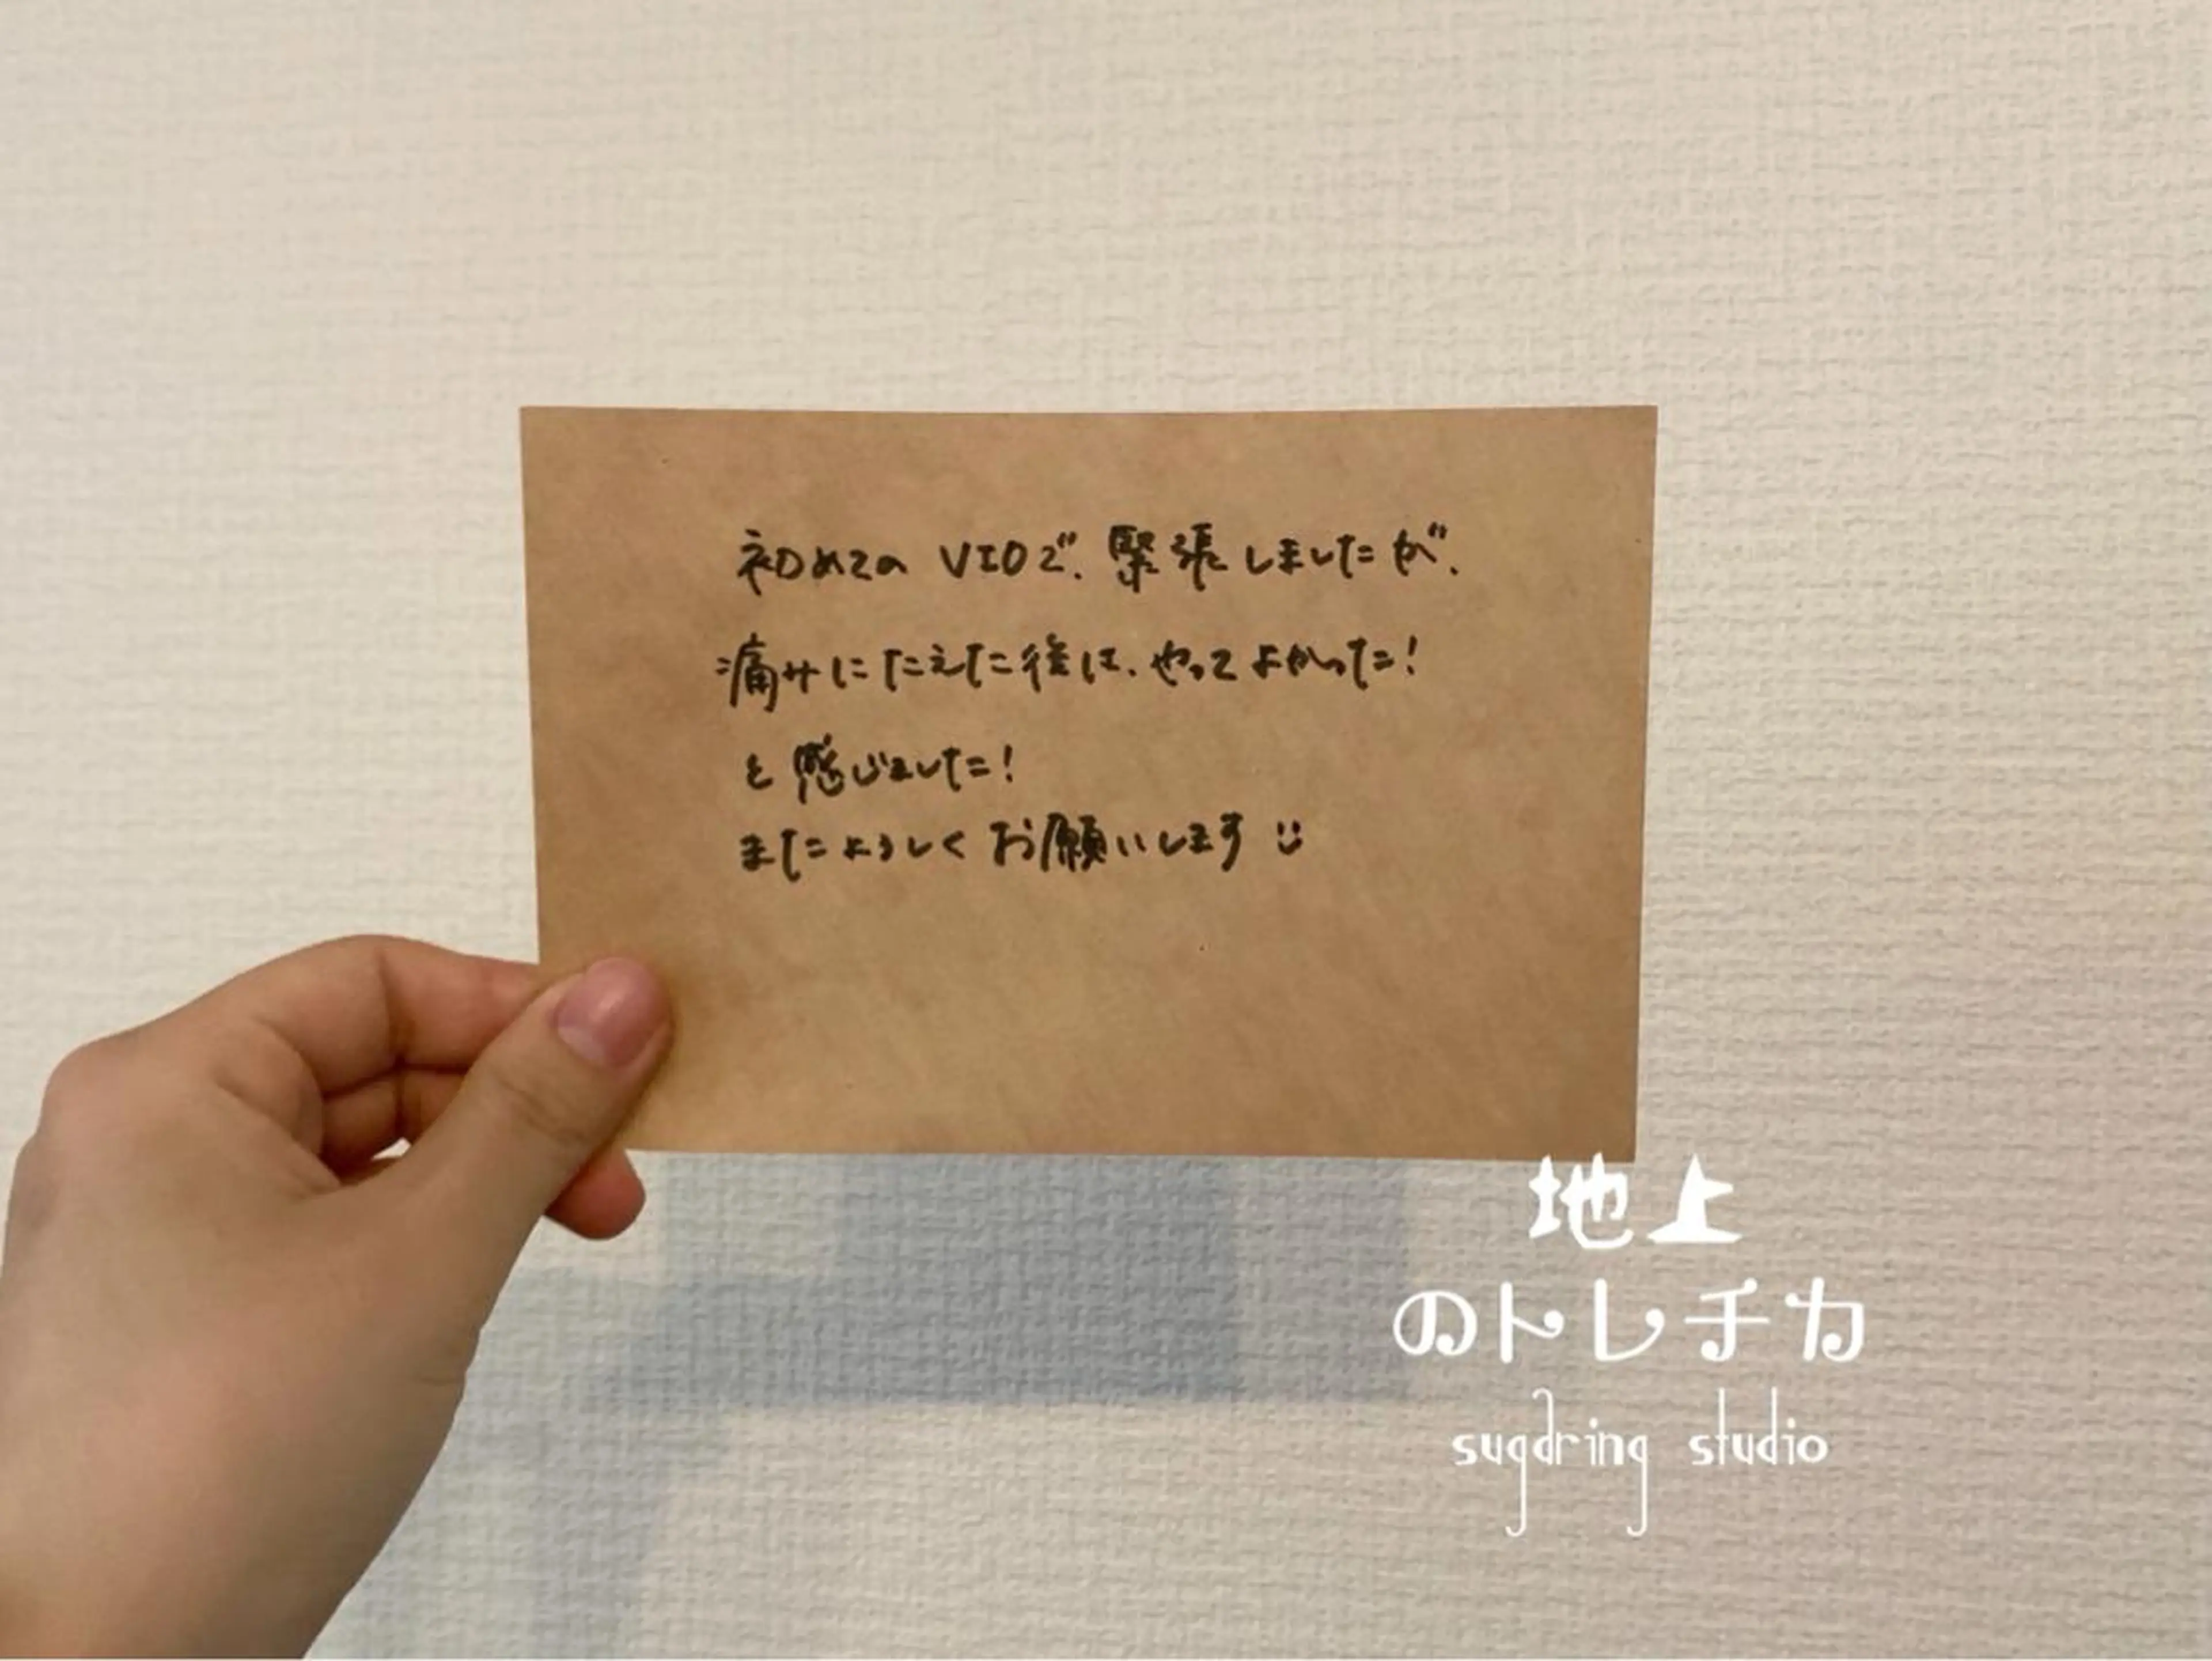 初めての VIOで、緊張しましたが、
痛みにたえた後は、やってよかった!
と感じました!
またよろしくお願いします
地上
のトレチカ
sugaring studio